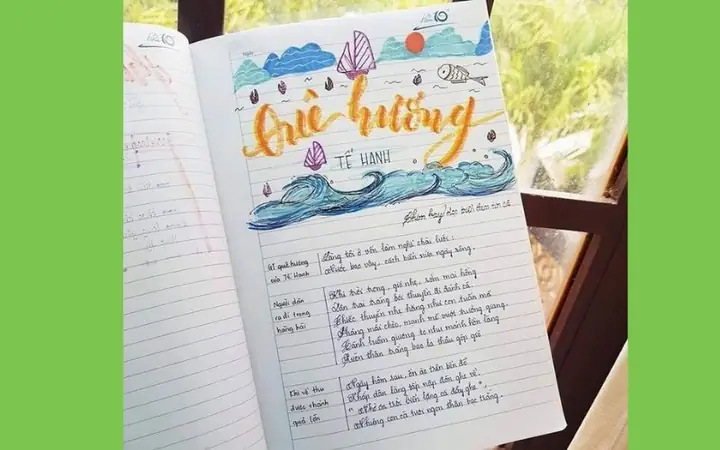 Ngày
Quê hương
TẾ HANH
Chim bay dọc biển đem tin cá
Vị quê hương
của Tế Hanh
Làng tôi ở vốn làm nghề chài lưới :
Nước bao vây, cách biển nửa ngày sông.
Người dân
ra đi trong
hăng hái
Khi trời trong, gió nhẹ, sớm mai hồng
Dân trai tráng bơi thuyền đi đánh cá
Chiếc thuyền nhẹ hăng như con tuấn mã
Phăng mái chèo, mạnh mẽ vượt trường giang.
Cánh buồm giương to như mảnh hồn làng
Rướn thân trắng bao la thâu góp gió
Khi về thu
được thành
quả lớn
Ngày hôm sau, ồn ào trên bến đỗ
Khắp dân làng tấp nập đón ghe về.
" Nhờ ơn trời biển lặng cá đầy ghe",
Những con cá tươi ngon thân bạc trắng.